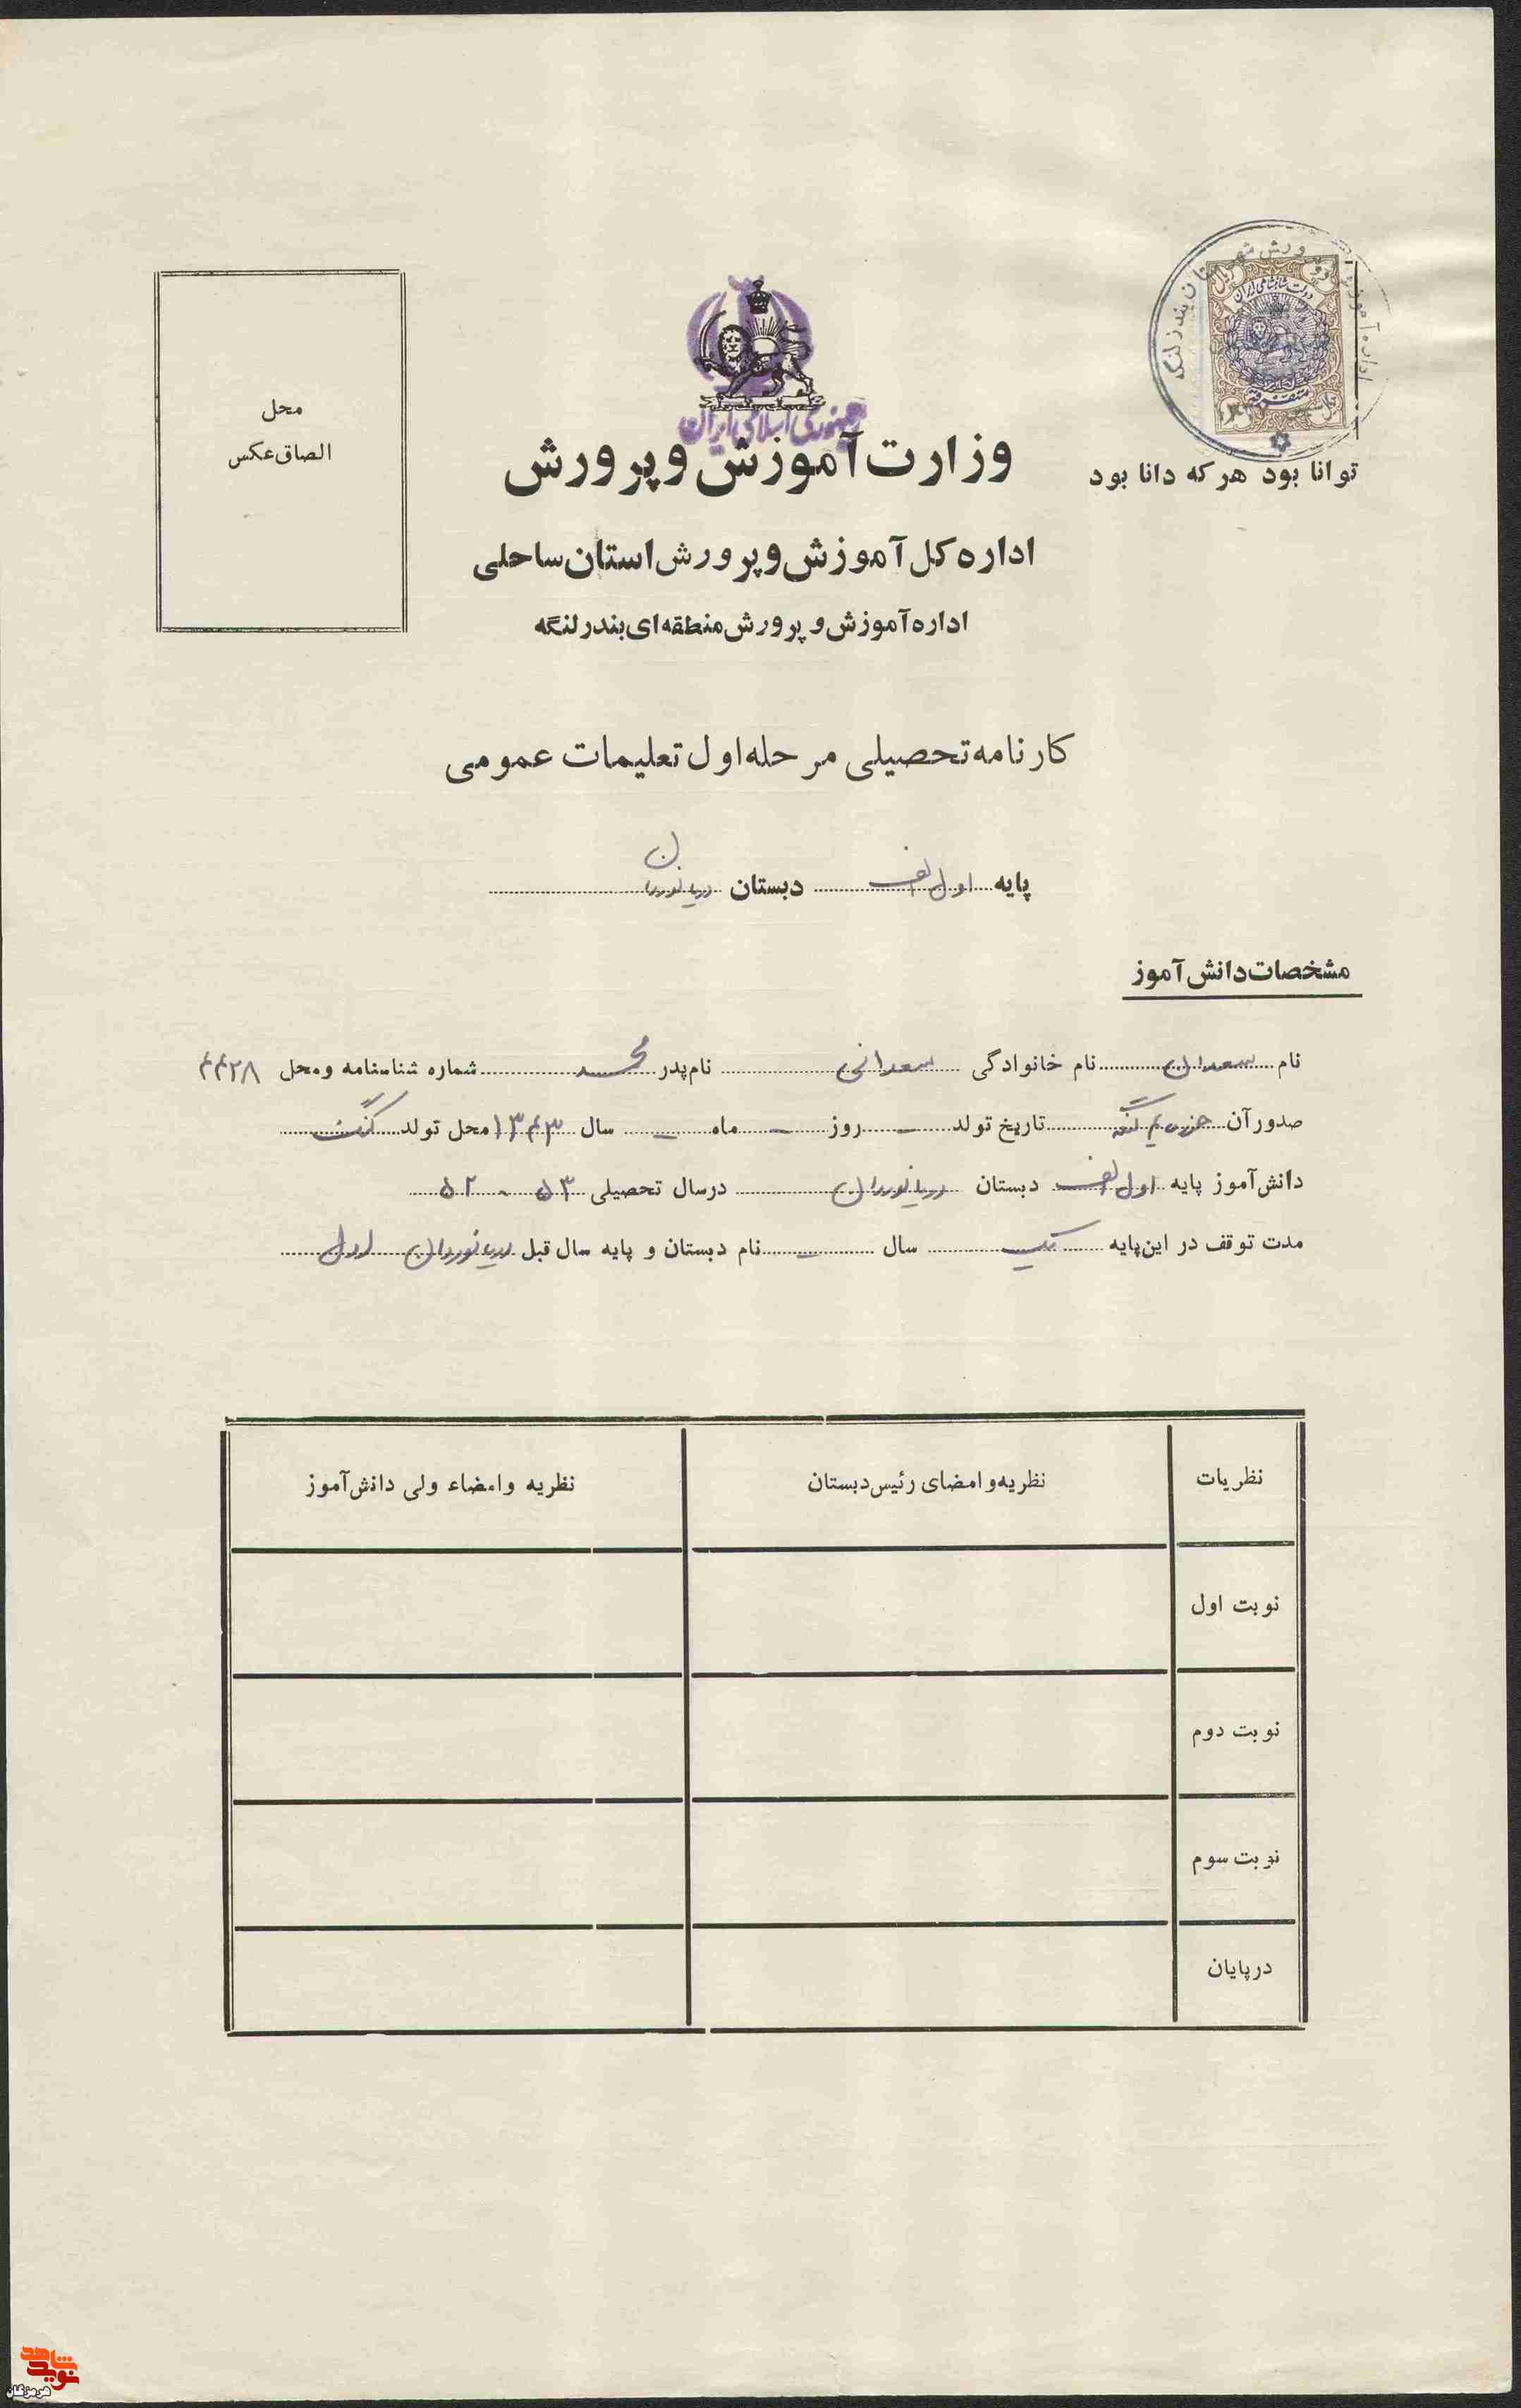 دولت شاهنشاهی ایران
توانا بود هر که دانا بود
محل
الصاق عکس
جمهوری اسلامی ایران
وزارت آموزش و پرورش
اداره کل آموزش و پرورش استان ساحلی
اداره آموزش و پرورش منطقه ای بندر لنگه
کارنامه تحصیلی مرحله اول تعلیمات عمومی
پایه اول الف دبستان دریانوردان
مشخصات دانش آموز
نام سعدان نام خانوادگی سعدانی نام پدر محمد شماره شناسنامه و محل ۴۴۲۸
صدور آن لنگه تاریخ تولد - روز - ماه - سال ۱۳۴۳ محل تولد کنگ
دانش آموز پایه اول الف دبستان دریانوردان در سال تحصیلی ۵۳ - ۵۲
مدت توقف در این پایه یک سال - نام دبستان و پایه سال قبل دریانوردان اول
نظریات نظریه و امضای رئیس دبستان نظریه و امضاء ولی دانش آموز
نوبت اول
نوبت دوم
نوبت سوم
در پایان
نوید شاهد
هرمزگان